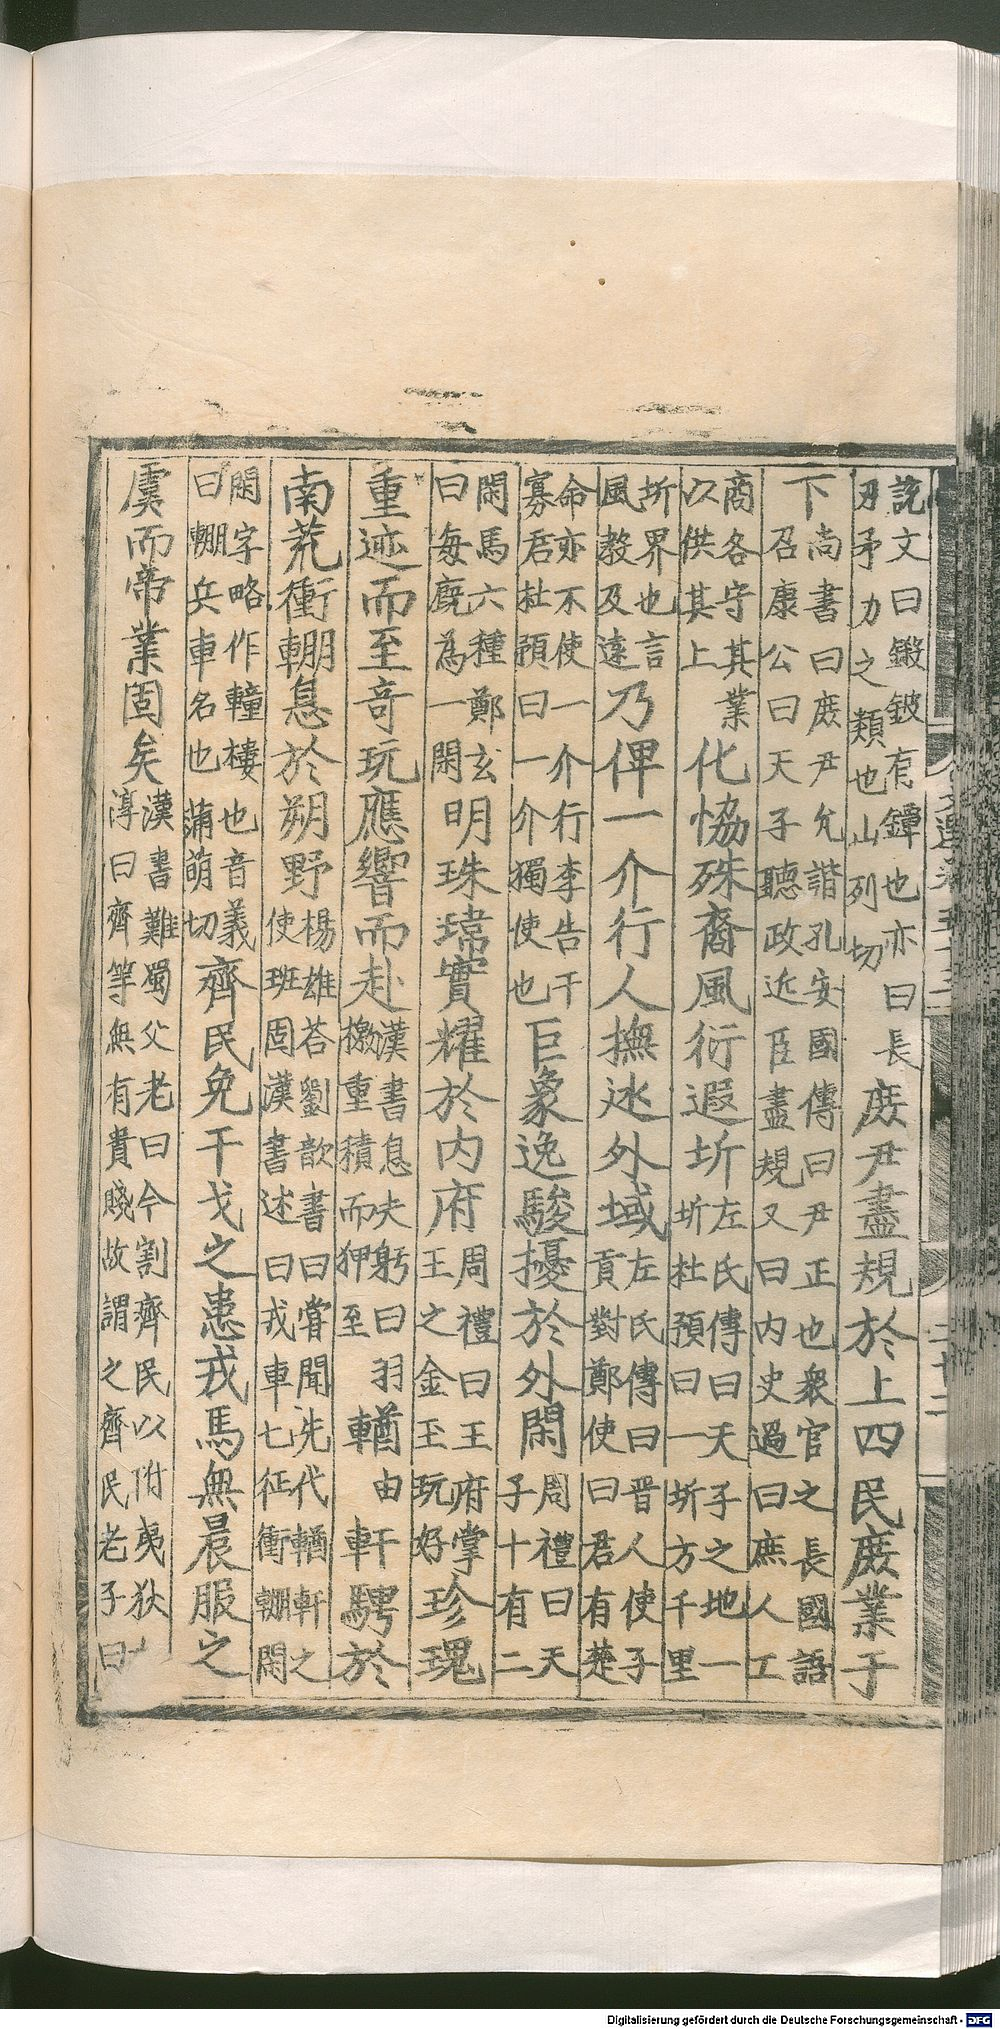 說文曰鎩鈹有鐔也亦曰長
刃矛力之類也山列切
庶尹盡規於上四民庶業于
下
尚書曰庶尹允諧孔安國傳曰尹正也衆官之長國語
召康公曰天子聽政近臣盡規又曰内史過曰庶人工
商各守其業
以供其上
化恊殊裔風衍遐圻
左氏傳曰天子之地一
圻杜預曰一圻方千里
圻界也言
風教及遠
乃俾一介行人撫迯外域
左氏傳曰晉人使子
貢對鄭使曰君有楚
命亦不使一介行李告干
寡君杜預曰一介獨使也
巨象逸駿擾於外閑
周禮曰天
子十有二
閑馬六種鄭玄
曰每廐為一閑
明珠瑋寶耀於内府
周禮曰王府掌
王之金玉玩好
珍瑰
重迹而至奇玩應響而赴
漢書息夫躬曰羽
檄重積而狎至
輶由軒騁於
南荒衝輣息於朔野
楊雄荅劉歆書曰嘗聞先代輶軒之
使班固漢書述曰戎車七征衝輣閑
閑字略作𨎴樓也音義
曰輣兵車名也蒲萌切
齊民免干戈之患戎馬無晨服之
虞而帝業固矣
漢書難蜀父老曰今割齊民以附夷狄
淳曰齊等無有貴賤故謂之齊民老子曰
Digitalisierung gefördert durch die Deutsche Forschungsgemeinschaft - DFG